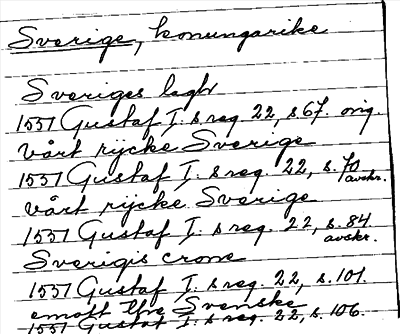 Sverige, konungarike
Sveriges lagh
1551 Gustaf I. s reg. 22, s 67. orig.
vårt rijcke Sverige
1551 Gustaf I. s reg. 22, s. 70
avskr.
vårt rijcke Sverige
1551 Gustaf I. s reg. 22, s. 84
avskr.
Sverigis crone
1551 Gustaf I. s reg. 22, s. 101.
emott the Svenske
1551 Gustaf I. s reg. 22, s. 106.